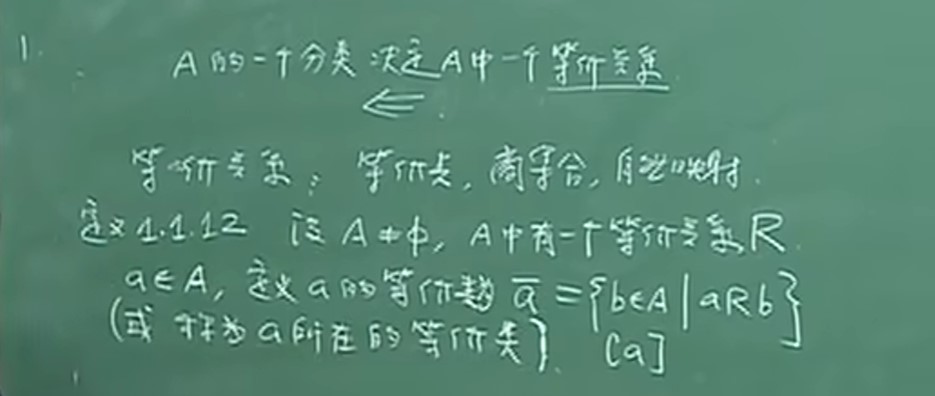 1.
A的一个分类决定A中一个等价关系
⇐
等价关系: 等价类, 商集合, 自然映射.
定义1.1.12 设A≠φ, A中有一个等价关系R.
a∈A, 定义a的等价类 ā={b∈A|aRb}
(或称为a所在的等价类) [a]